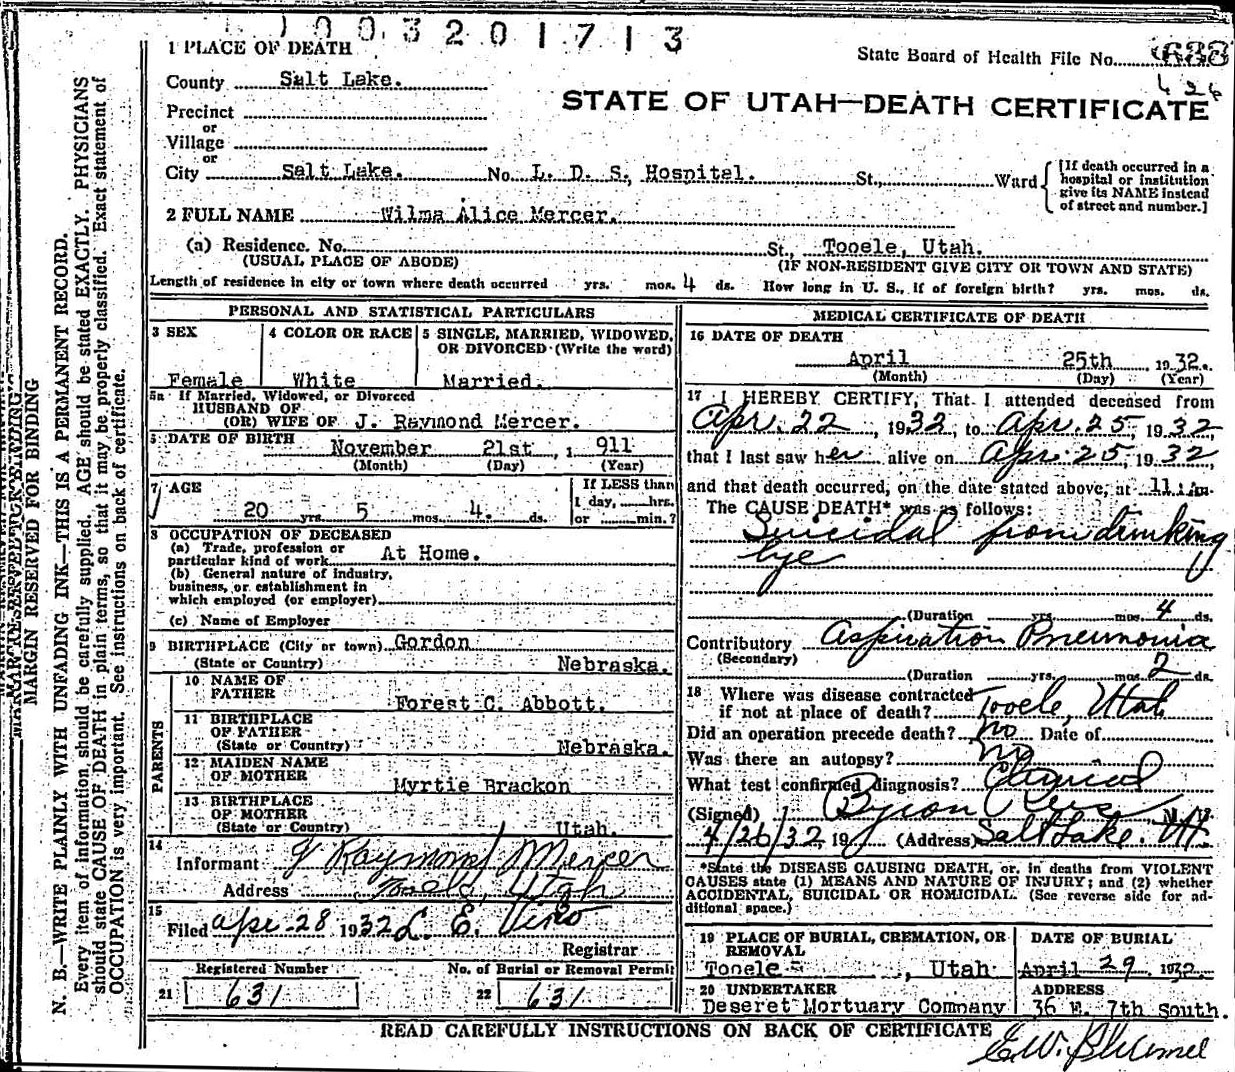 1003201713
1 PLACE OF DEATH
State Board of Health File No.
County Salt Lake.
426
STATE OF UTAH—DEATH CERTIFICATE
Precinct
or
Village
or
City Salt Lake. No. L. D. S. Hospital. St., Ward
[If death occurred in a hospital or institution give its NAME instead of street and number.]
2 FULL NAME Wilma Alice Mercer.
(a) Residence. No. St., Tooele, Utah.
(USUAL PLACE OF ABODE) (IF NON-RESIDENT GIVE CITY OR TOWN AND STATE)
Length of residence in city or town where death occurred yrs. mos. 4 ds. How long in U. S., if of foreign birth? yrs. mos. ds.
PERSONAL AND STATISTICAL PARTICULARS
3 SEX
Female
4 COLOR OR RACE
White
5 SINGLE, MARRIED, WIDOWED, OR DIVORCED (Write the word)
Married.
5a If Married, Widowed, or Divorced
HUSBAND OF
(OR) WIFE OF J. Raymond Mercer.
6 DATE OF BIRTH
November 21st, 1911
(Month) (Day) (Year)
7 AGE
20 yrs. 5 mos. 4. ds.
If LESS than
1 day, hrs.
or min.?
8 OCCUPATION OF DECEASED
(a) Trade, profession or
particular kind of work At Home.
(b) General nature of industry,
business, or establishment in
which employed (or employer)
(c) Name of Employer
9 BIRTHPLACE (City or town) Gordon
(State or Country) Nebraska.
PARENTS
10 NAME OF
FATHER Forest C. Abbott.
11 BIRTHPLACE
OF FATHER
(State or Country) Nebraska.
12 MAIDEN NAME
OF MOTHER Myrtie Brackon
13 BIRTHPLACE
OF MOTHER
(State or Country) Utah.
14
Informant J Raymond Mercer
Address Tooele, Utah
15
Filed Apr. 28 1932 L. E.
Registrar
Registered Number
21 631
No. of Burial or Removal Permit
22 631
MEDICAL CERTIFICATE OF DEATH
16 DATE OF DEATH
April 25th 1932.
(Month) (Day) (Year)
17 I HEREBY CERTIFY, That I attended deceased from
Apr. 22, 1932, to Apr. 25 1932,
that I last saw her alive on Apr. 25, 1932,
and that death occurred, on the date stated above, at 11
The CAUSE DEATH* was as follows:
Suicidal from drinking
lye
(Duration yrs. mos. 4 ds.
Contributory Aspiration Pneumonia
(Secondary)
(Duration yrs. mos. 2 ds.
18 Where was disease contracted
if not at place of death? Tooele, Utah
Did an operation precede death? no Date of
Was there an autopsy? no
What test confirmed diagnosis? Clinical
(Signed) Byron Rees M. D.
4/26/32 19 (Address) Salt Lake. Ut.
*State the DISEASE CAUSING DEATH, or, in deaths from VIOLENT
CAUSES state (1) MEANS AND NATURE OF INJURY; and (2) whether
ACCIDENTAL, SUICIDAL OR HOMICIDAL. (See reverse side for ad-
ditional space.)
19 PLACE OF BURIAL, CREMATION, OR
REMOVAL
Tooele, Utah
DATE OF BURIAL
April 29 1932
20 UNDERTAKER
Deseret Mortuary Company
ADDRESS
36 E. 7th South.
READ CAREFULLY INSTRUCTIONS ON BACK OF CERTIFICATE
E.W.
MARGIN RESERVED FOR BINDING
N. B.—WRITE PLAINLY WITH UNFADING INK—THIS IS A PERMANENT RECORD.
Every item of information should be carefully supplied. AGE should be stated EXACTLY. PHYSICIANS
should state CAUSE OF DEATH in plain terms, so that it may be properly classified. Exact statement of
OCCUPATION is very important. See instructions on back of certificate.